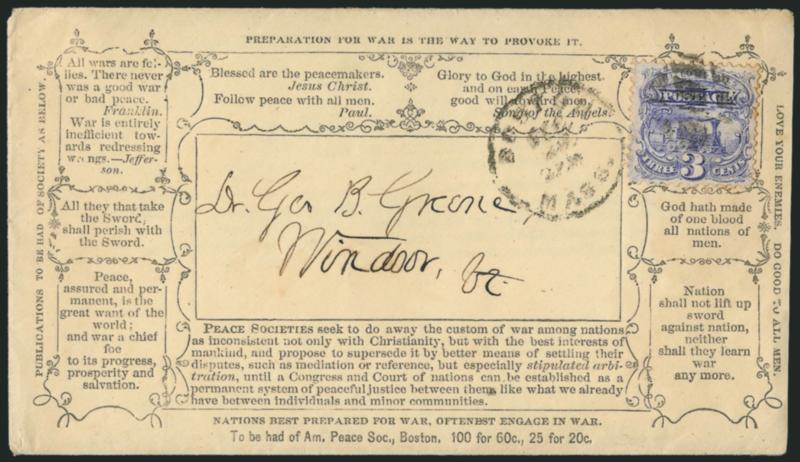 PREPARATION FOR WAR IS THE WAY TO PROVOKE IT.
PUBLICATIONS TO BE HAD OF SOCIETY AS BELOW.
All wars are fol-
lies. There never
was a good war
or bad peace.
Franklin.
War is entirely
inefficient tow-
ards redressing
wrongs.—Jeffer-
son.
All they that take
the Sword,
shall perish with
the Sword.
Peace,
assured and per-
manent, is the
great want of the
world;
and war a chief
foe
to its progress,
prosperity and
salvation.
Blessed are the peacemakers.
Jesus Christ.
Follow peace with all men.
Paul.
Glory to God in the highest
and on earth Peace,
good will toward men.
Song of the Angels.
BOSTON
MASS.
POSTAGE
THREE 3 CENTS
Dr. Geo B. Greene,
Windsor,
God hath made
of one blood
all nations of
men.
Nation
shall not lift up
sword
against nation,
neither
shall they learn
war
any more.
LOVE YOUR ENEMIES. DO GOOD TO ALL MEN.
PEACE SOCIETIES seek to do away the custom of war among nations
as inconsistent not only with Christianity, but with the best interests of
mankind, and propose to supersede it by better means of settling their
disputes, such as mediation or reference, but especially stipulated arbi-
tration, until a Congress and Court of nations can be established as a
permanent system of peaceful justice between them, like what we already
have between individuals and minor communities.
NATIONS BEST PREPARED FOR WAR, OFTENEST ENGAGE IN WAR.
To be had of Am. Peace Soc., Boston. 100 for 60c., 25 for 20c.